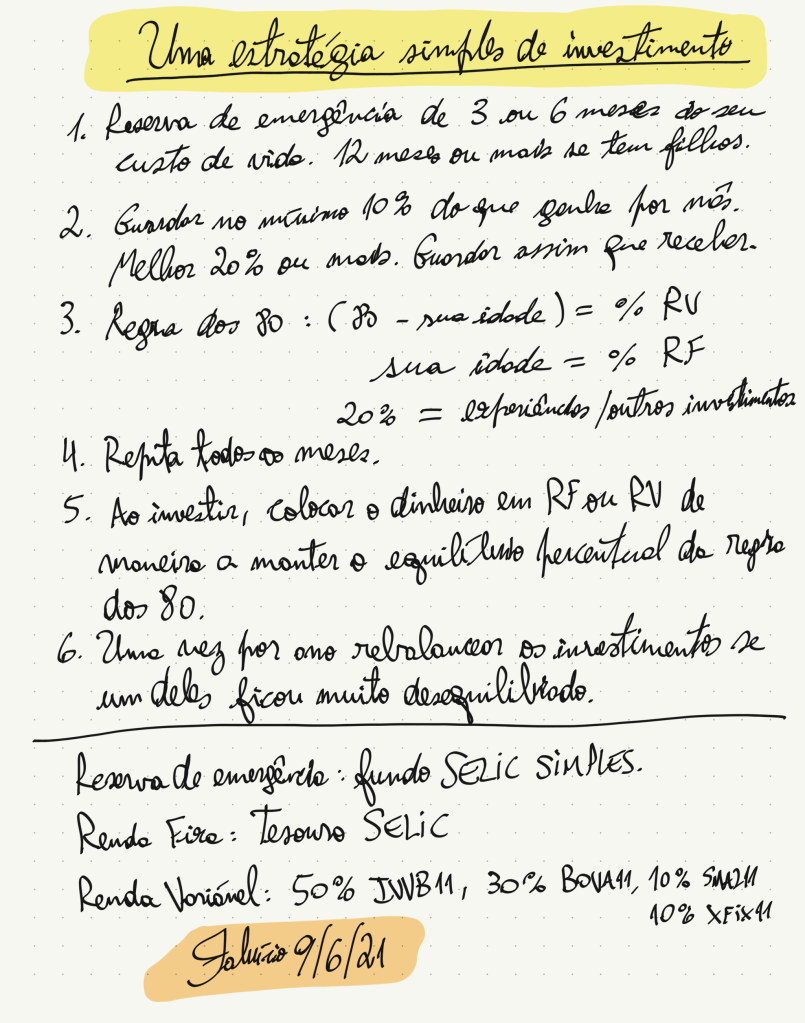 Uma estratégia simples de investimento
1. Reserva de emergência de 3 ou 6 meses do seu
custo de vida. 12 meses ou mais se tem filhos.
2. Guardar no mínimo 10% do que ganha por mês.
Melhor 20% ou mais. Guardar assim que receber.
3. Regra dos 80 : (80 - sua idade) = % RV
sua idade = % RF
20% = experiências/outros investimentos
4. Repita todos os meses.
5. Ao investir, colocar o dinheiro em RF ou RV de
maneira a manter o equilíbrio percentual da regra
dos 80.
6. Uma vez por ano rebalancear os investimentos se
um deles ficou muito desequilibrado.
Reserva de emergência: fundo SELIC SIMPLES.
Renda Fixa: Tesouro SELIC
Renda Variável: 50% IVVB11, 30% BOVA11, 10% SMAL11
10% XFIX11
Fabrício 9/6/21